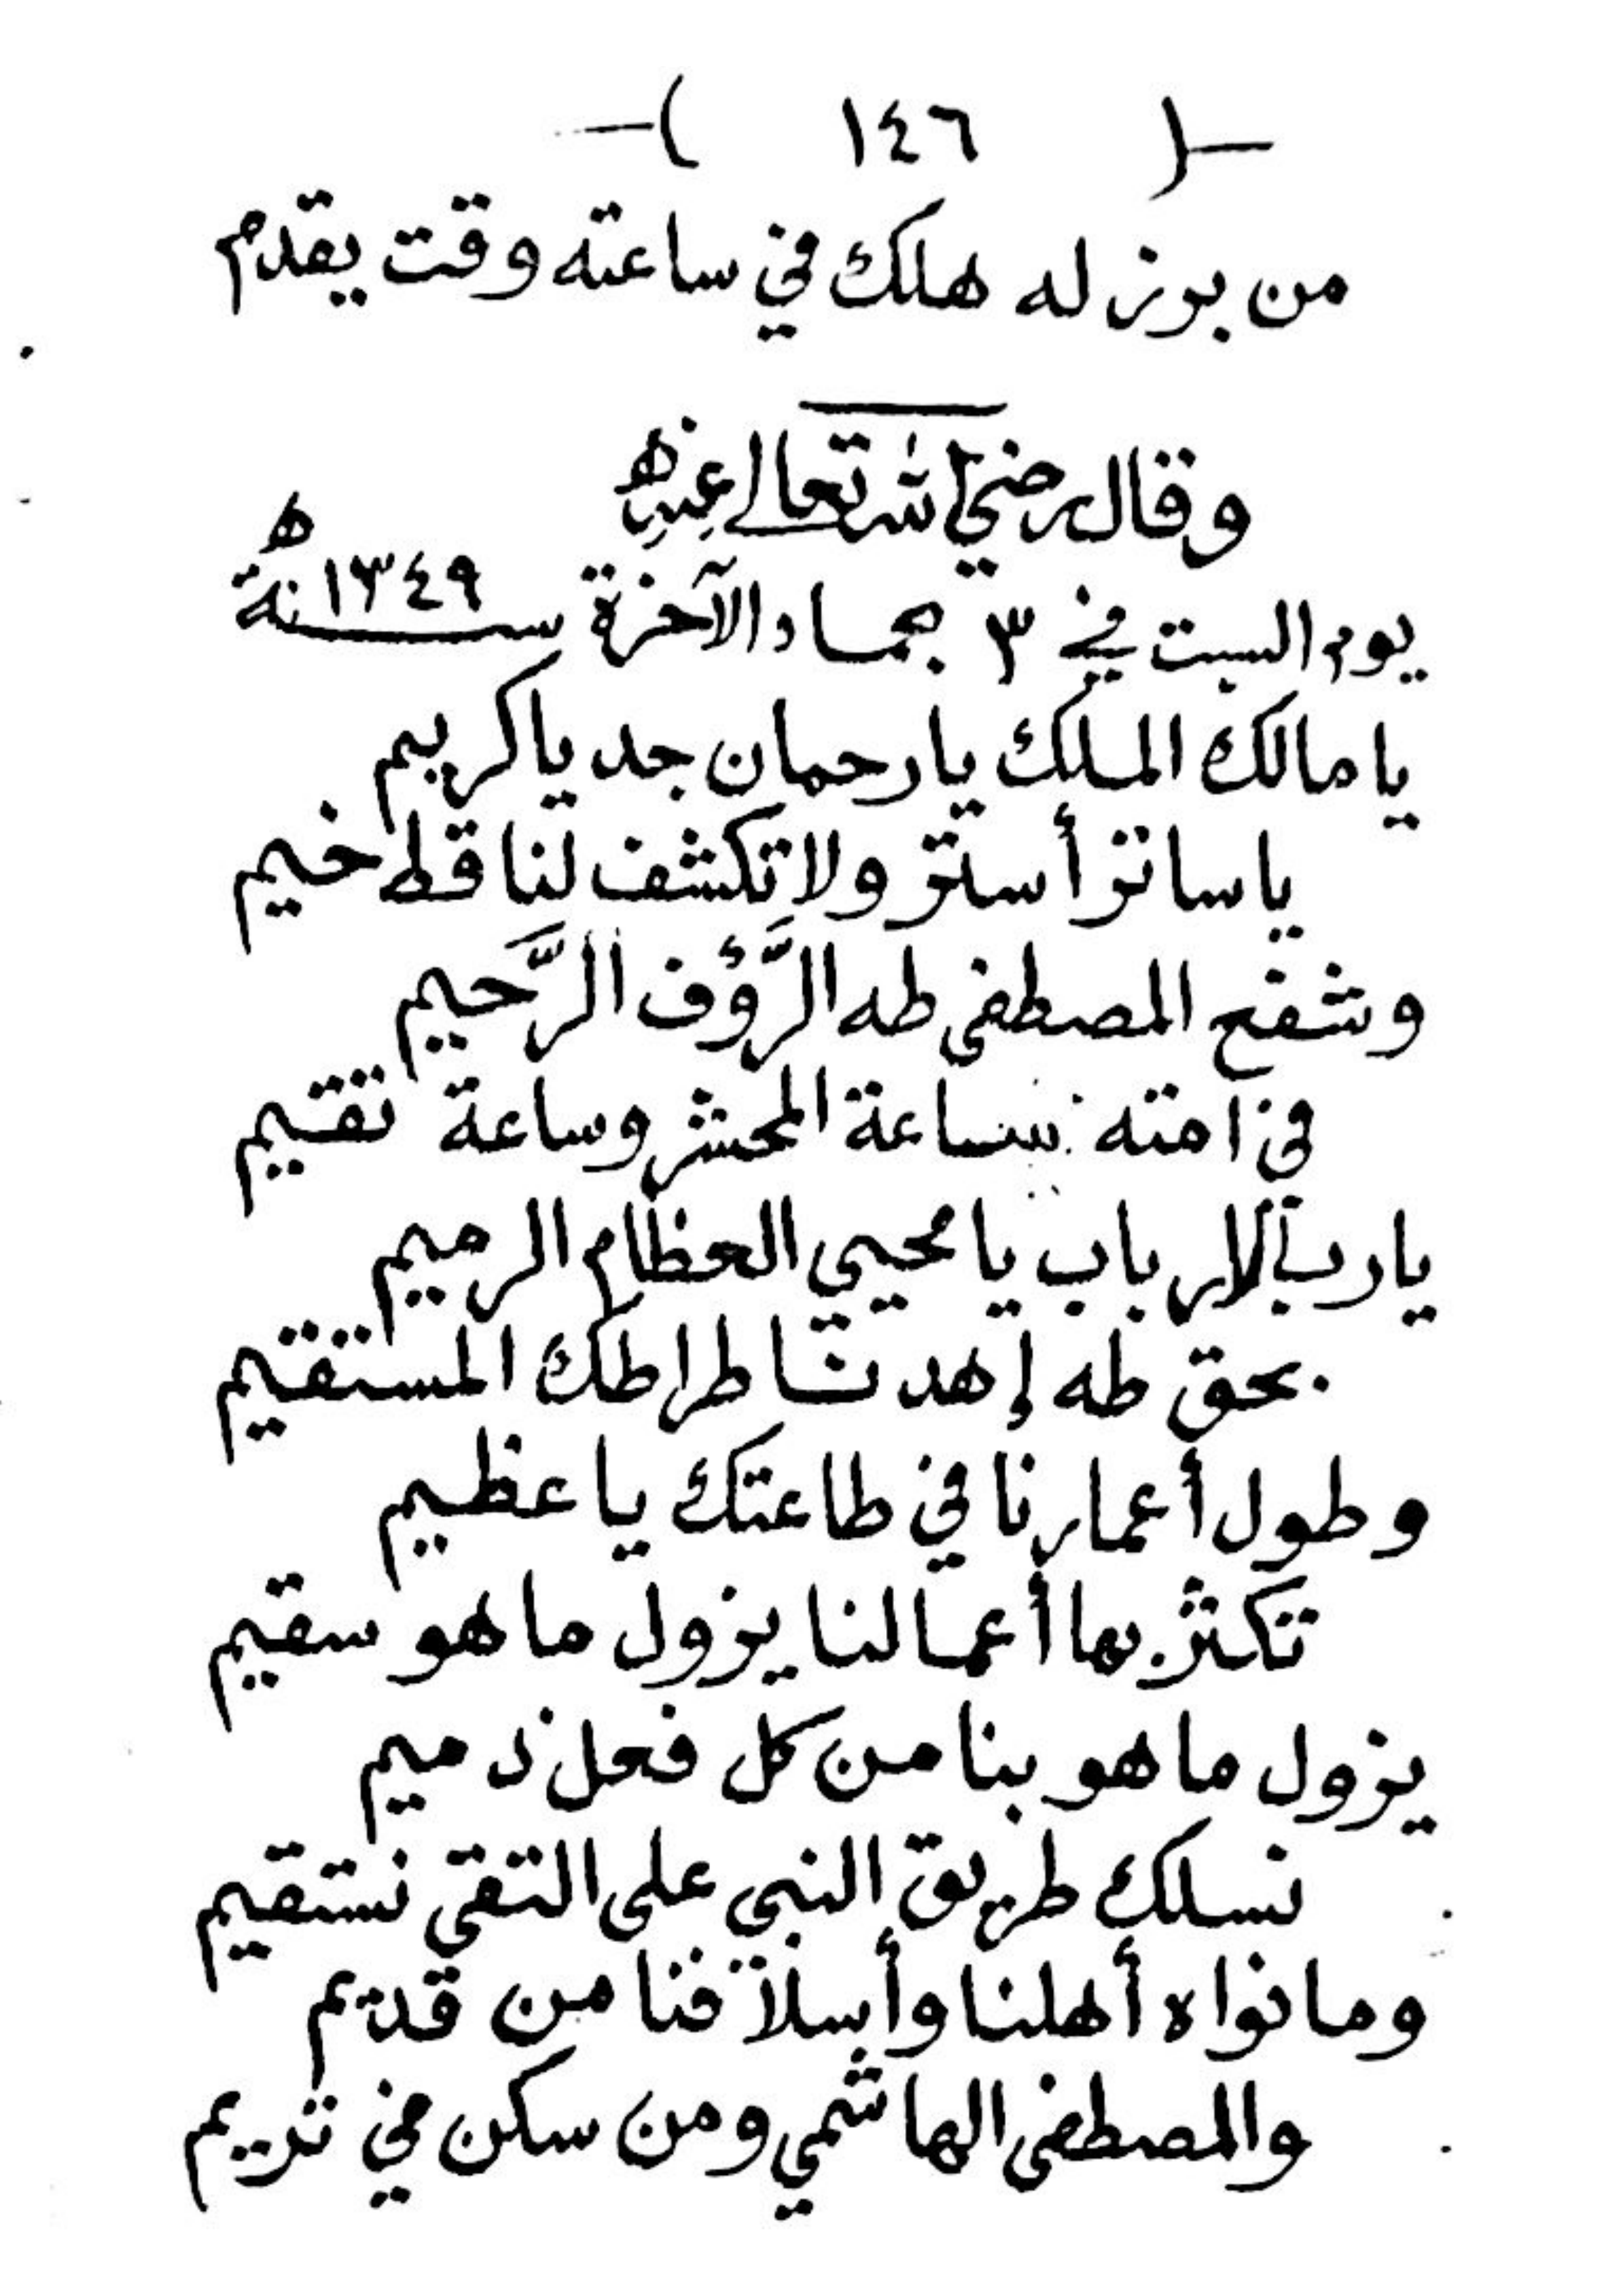 -( ١٤٦ )-
من بوز له هلك في ساعته وقت يقدم
وقال رضي الله تعالى عنه
يوم السبت في ٣ جماد الآخرة سنة ١٣٤٩ ه
يا مالك الملك يا رحمان جد يا كريم
يا ساتر أستر ولا تكشف لنا قط خيم
وشفع المصطفى طه الرَّؤف الرَّحيم
في امته ساعة المحشر وساعة تقيم
يا رب الارباب يا محيي العظام الرميم
بحق طه إهدنا طراطك المستقيم
وطول أعمارنا في طاعتك يا عظيم
تكثر بها أعمالنا يزول ما هو سقيم
يزول ما هو بنا من كل فعل ذميم
نسلك طريق النبي على التقى نستقيم
وما نواه أهلنا وأسلافنا من قديم
والمصطفى الهاشمي ومن سكن في تريم